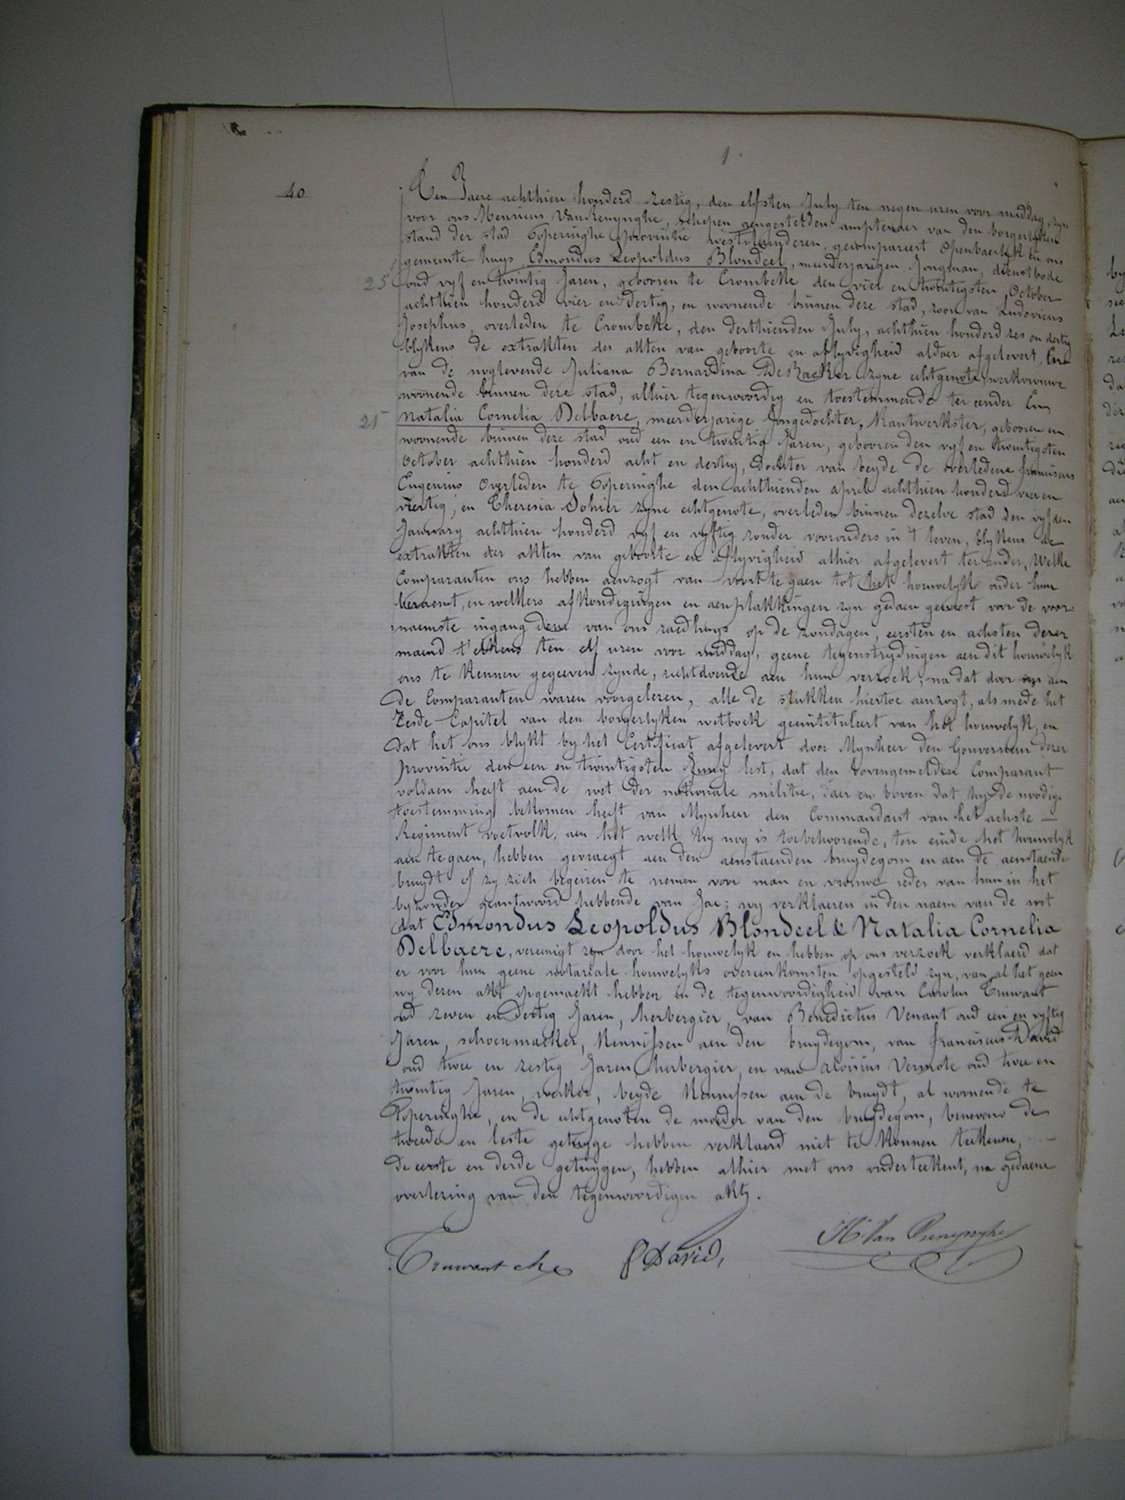 1.
40
Ten Jaere achthien honderd zestig, den elfsten July ten negen uren voor middag, zyn
voor ons Henricus Van Renynghe, schepen aengestelden amptenaer van den borgerlyken
stand der stad Poperinghe provintie westvlaenderen, gecompareert openbaerlyk in ons
gemeente huys, Edmondus Leopoldus Blondeel, meerderjarigen Jongman, dienstbode
25 oud vyf en twintig Jaren, gebooren te Crombeke den vier en twintigsten October
achthien honderd vier en dertig, en woonende binnen deze stad, zoon van Ludovicus
Josephus, overleden te Crombeke, den derthienden July, achthien honderd zes en dertig
blykens de extrakten der akten van geboorte en aflyvigheid aldaer afgelevert, En
van de nog levende Juliana Bernardina De Backer zyne echtgenote, werkvrouwe
woonende binnen deze stad, alhier tegenwoordig en toestemmende ter eender En
21 Natalia Cornelia Delbaere, meerderjarige Jongedochter, Kantwerkster, gebooren en
woonende binnen deze stad oud een en twintig Jaren, gebooren den vyf en twintigsten
October achthien honderd acht en dertig, Dochter van beyde de overledene franciscus
Eugenius overleden te Poperinghe den achthienden april achthien honderd vier en
veertig, en Theresia Sohier zyne echtgenote, overleden binnen dezelve stad den vyfden
January achthien honderd vyf en vyftig zonder voorouders in 't leven, blykens de
extrakten der akten van geboorte en aflyvigheid alhier afgelevert ter ander, Welke
Comparanten ons hebben aenzogt van voort te gaen tot het houwelyk onder hun
beraemt, en welkers afkondigingen en aenplakkingen zyn gedaen geweest voor de voor-
naemste ingang deur van ons raedhuys op de zondagen, eersten en achsten dezer
maend t'elkens ten elf uren voor middag, geene tegenstrydingen aen dit houwelyk
ons te kennen gegeven zynde, rechtdoende aen hun verzoek, na dat door ons aen
de Comparanten waren voorgelezen, alle de stukken hiertoe aenzogt, als mede het
Zesde Capitel van den borgerlyken wetboek geintituleert van het houwelyk, en
dat het ons blykt by het Certificat afgelevert door Mynheer den Gouverneur dezer
provintie den een en twintigsten Juny lest, dat den bovengemelden Comparant
voldaen heeft aen de wet der nationale militie, daer en boven dat hy de noodige
toestemming bekomen heeft van Mynheer den Commandant van het achste —
Regiment voetvolk, aen het welk hy nog is toebehoorende, ten einde het houwelyk
aen te gaen, hebben gevraegt aen den aenstaenden bruydegom en aen de aenstaende
bruydt of zy zich begeiren te nemen voor man en vrouwe ieder van hun in het
byzonder geantwoord hebbende van Jae; wy verklaeren in den naem van de wet
dat Edmondus Leopoldus Blondeel & Natalia Cornelia
Delbaere, vereenigt zyn door het houwelyk en hebben op ons verzoek verklaerd dat
er voor hun geene notariale houwelyks overeenkomsten opgesteld zyn, van al het geen
wy deren akt opgemaekt hebben in de tegenwoordigheid van Carolus Truwant
oud zeven en dertig Jaren, herbergier, van Benedictus Venant oud een en vyftig
Jaren, schoenmaeker, Kennissen aen den bruydegom, van franciscus David
oud twee en zestig Jaren herbergier, en van Aloisius Vermote oud twee en
twintig Jaren, werker, beyde Kennissen aen de bruydt, al wonende te
Poperinghe, en de echtgenoten de moeder van den bruydegom, benevens de
tweede en leste getuyge hebben verklaerd niet te konnen teekenen, —
de eerste en derde getuygen, hebben alhier met ons onderteekent, na gedaene
overlezing van den tegenwoordigen akt.
Truwant ch F David, H Van Renynghe